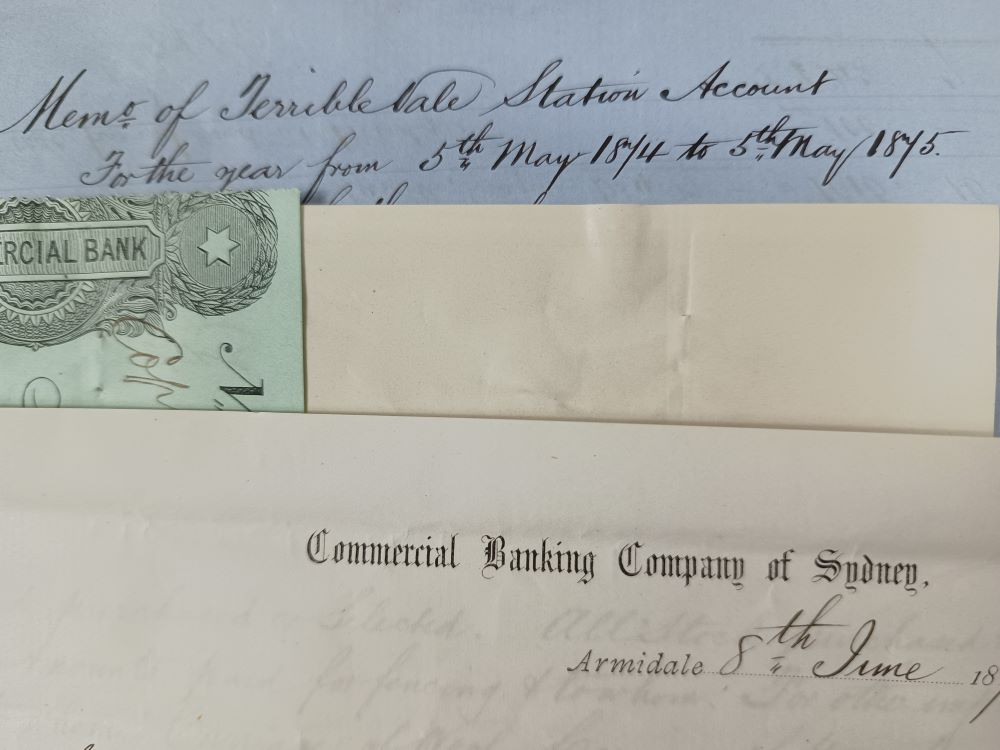 Mem.o of Terrible Vale Station Account
For the year from 5th May 1874 to 5th May 1875.
ERCIAL BANK
Commercial Banking Company of Sydney,
Armidale 8th June 18